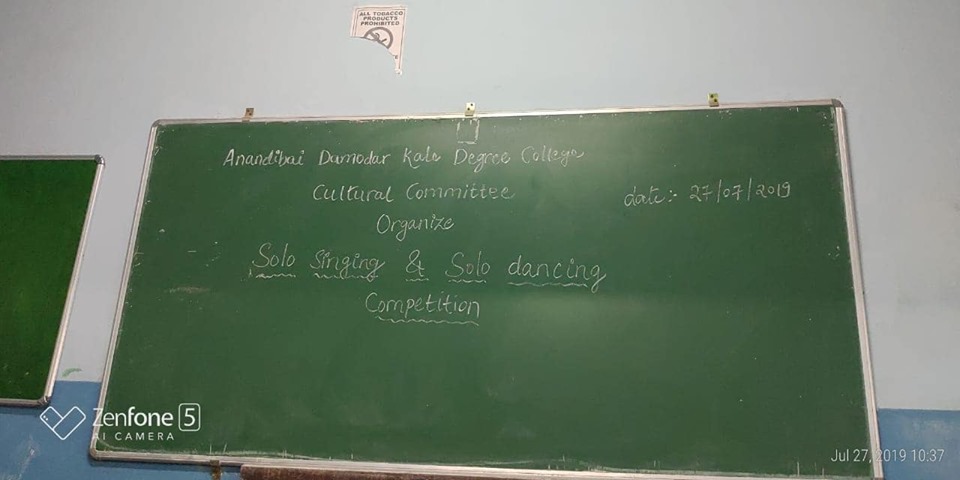 ALL TOBACCO
PRODUCTS
PROHIBITED
Anandibai Damodar Kale Degree College
Cultural Committee
date:- 27/07/2019
Organize
Solo Singing & Solo dancing
Competition
Zenfone 5
AI CAMERA
Jul 27, 2019 10:37